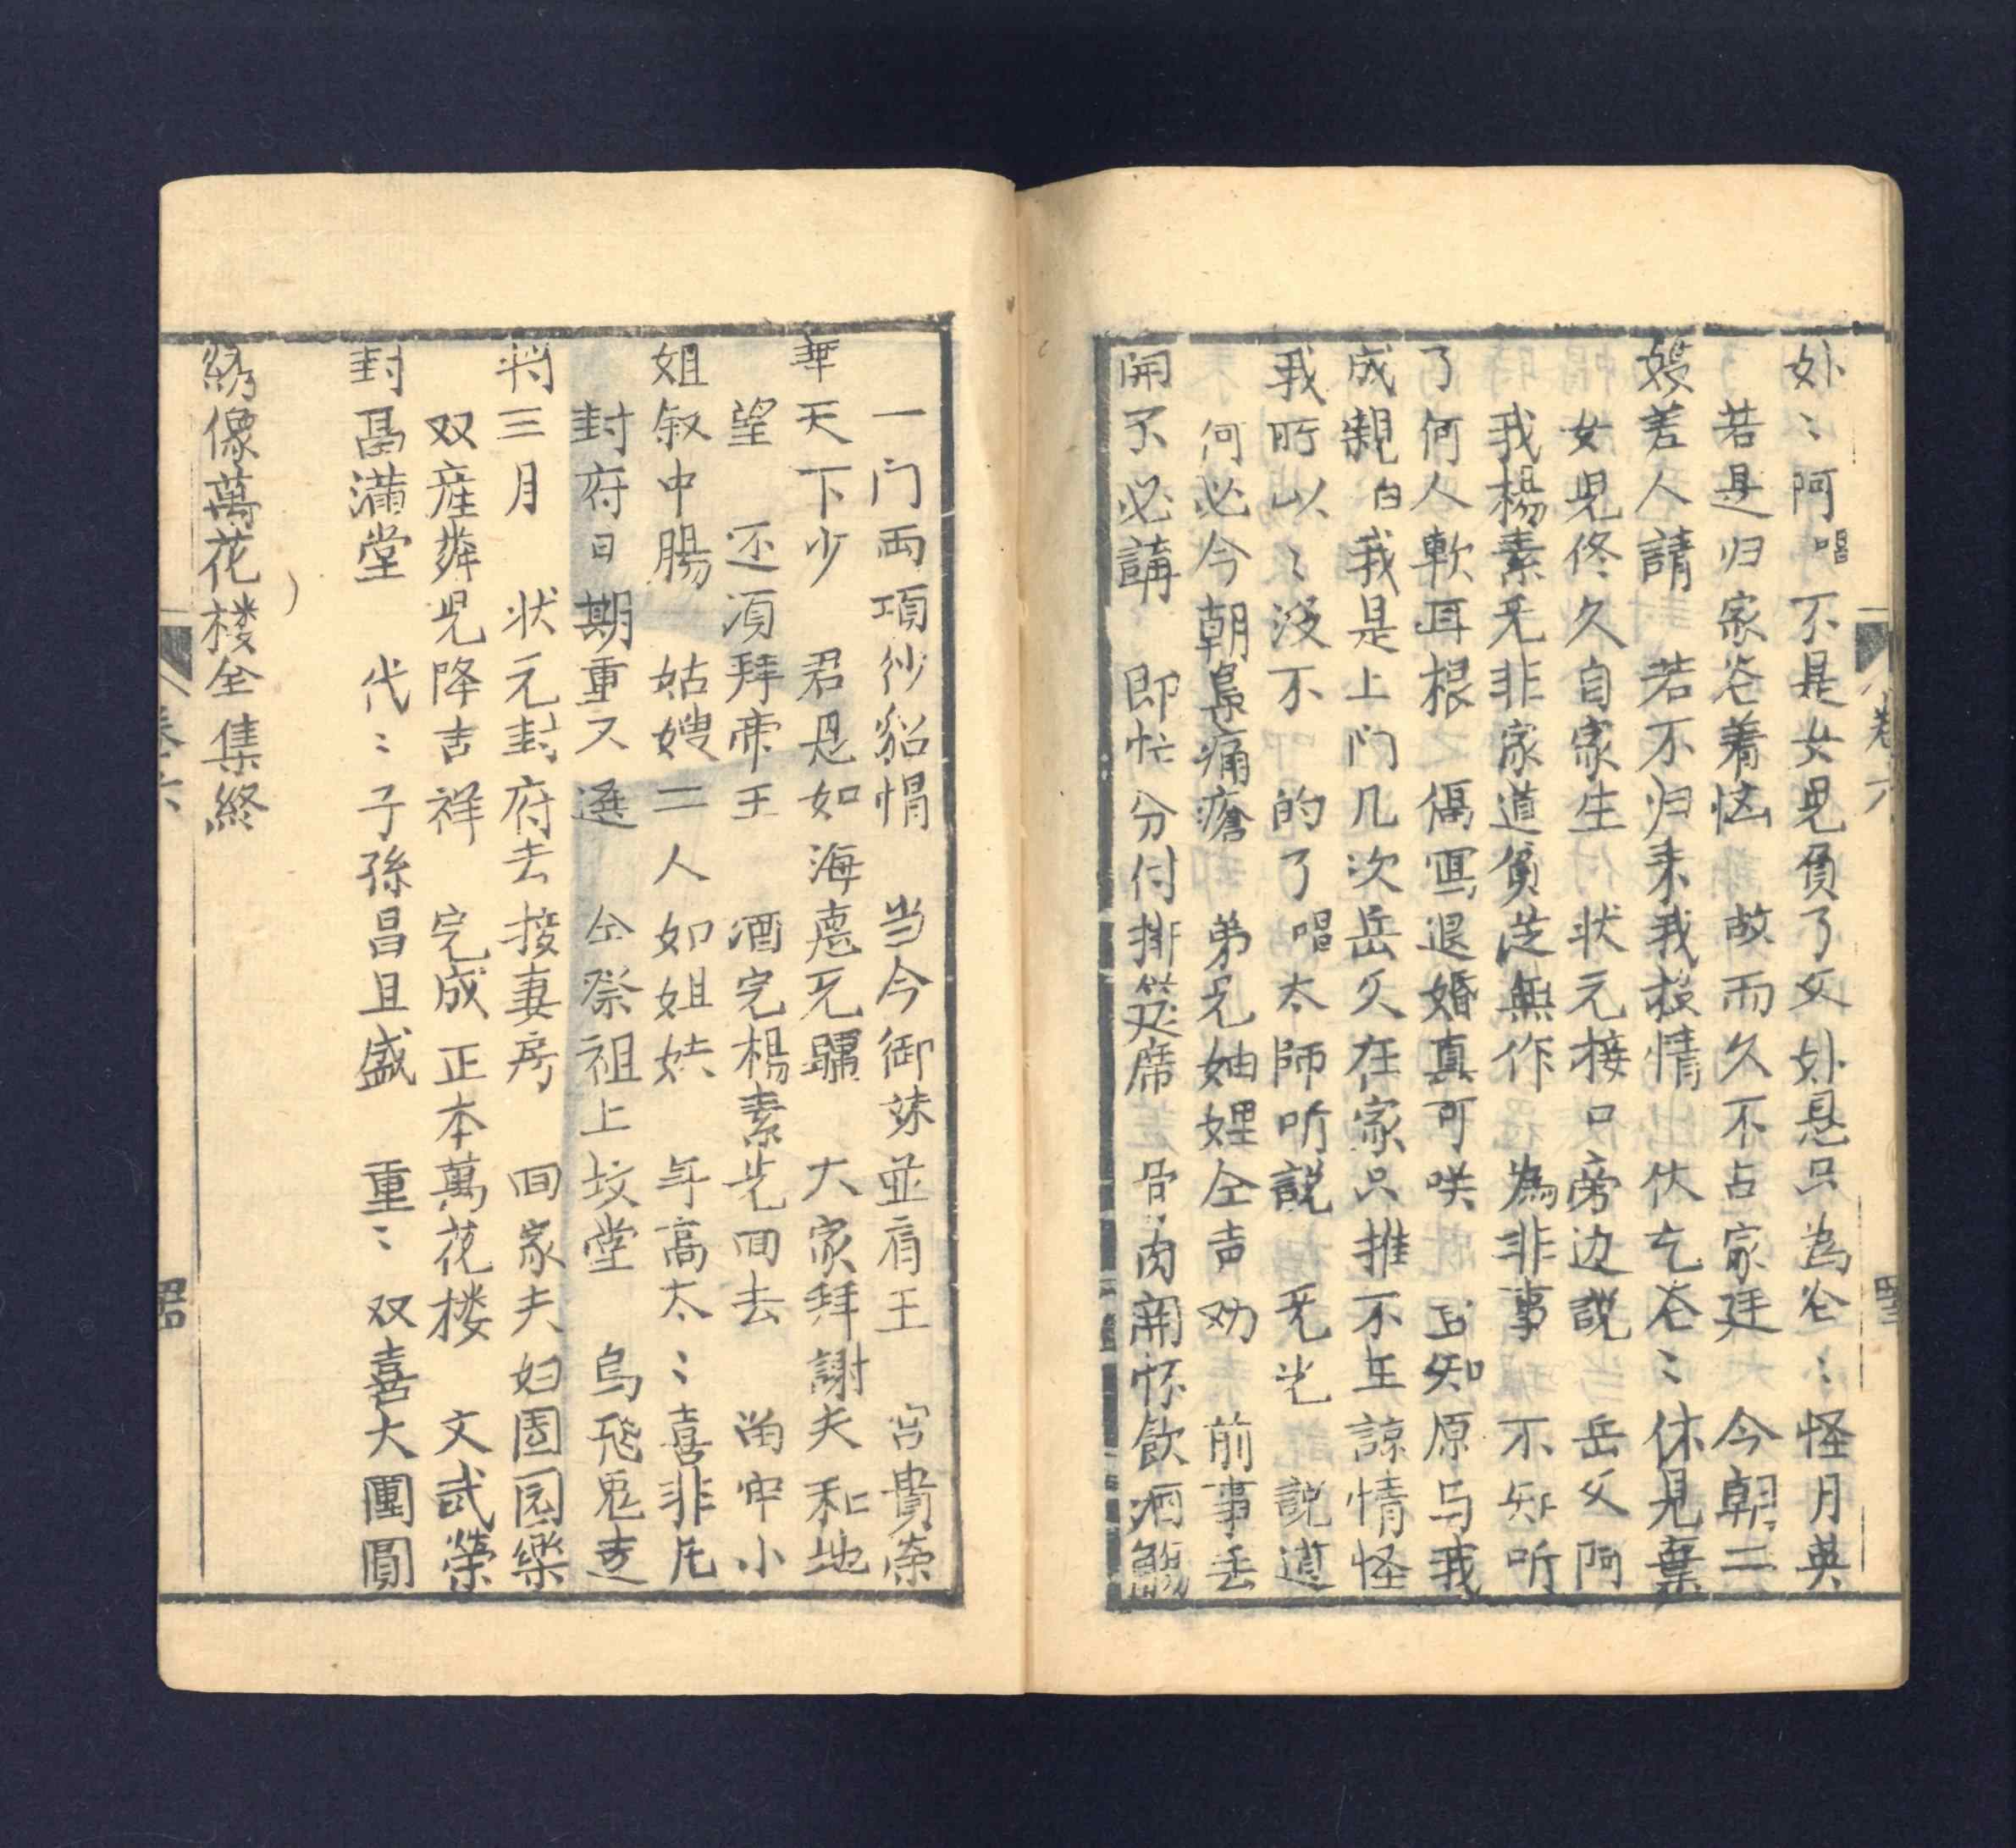 外〻阿 唱 不是女兒負了父 外悬只為爸〻怪月英
若是归家爸着恼 故而久不占家廷 今朝二
嫂差人請 若不归来我想情 伏乞爸〻休見棄
女兒终久自家生 状元接口旁边説 岳父阿
我楊素旡非家道貧 從無作為非事 不知听
了何人軟耳根 偪寫退婚真可咲 㠯知原与我
成親 白 我是上门几次岳父在家只推不在諒情怪
我所以〻没不的了 唱 太師听説旡光 説道
何必今朝鳥痛瘡 弟兄妯娌仝声劝 前事丢
開不必講 即忙分付排筵席 骨肉開怀飲酒觴
卷六
一门両項紗貂帽 当今御妹並肩王 宮貴榮
華天下少 君恩如海悳旡疆 大家拜謝天和地
望還須拜帝王 酒完楊素先回去 留牢小
姐叙中腸 姑嫂二人如姐妹 年高太〻喜非凡
封府日期重又選 仝祭祖上坟堂 烏飛兎走
将三月 状元封府去接妻房 回家夫妇团园樂
双産麟兒降吉祥 完成正本萬花楼 文武榮
封喜滿堂 代〻子孫昌且盛 重〻双喜大團圓
綉像萬花楼全集終
卷六